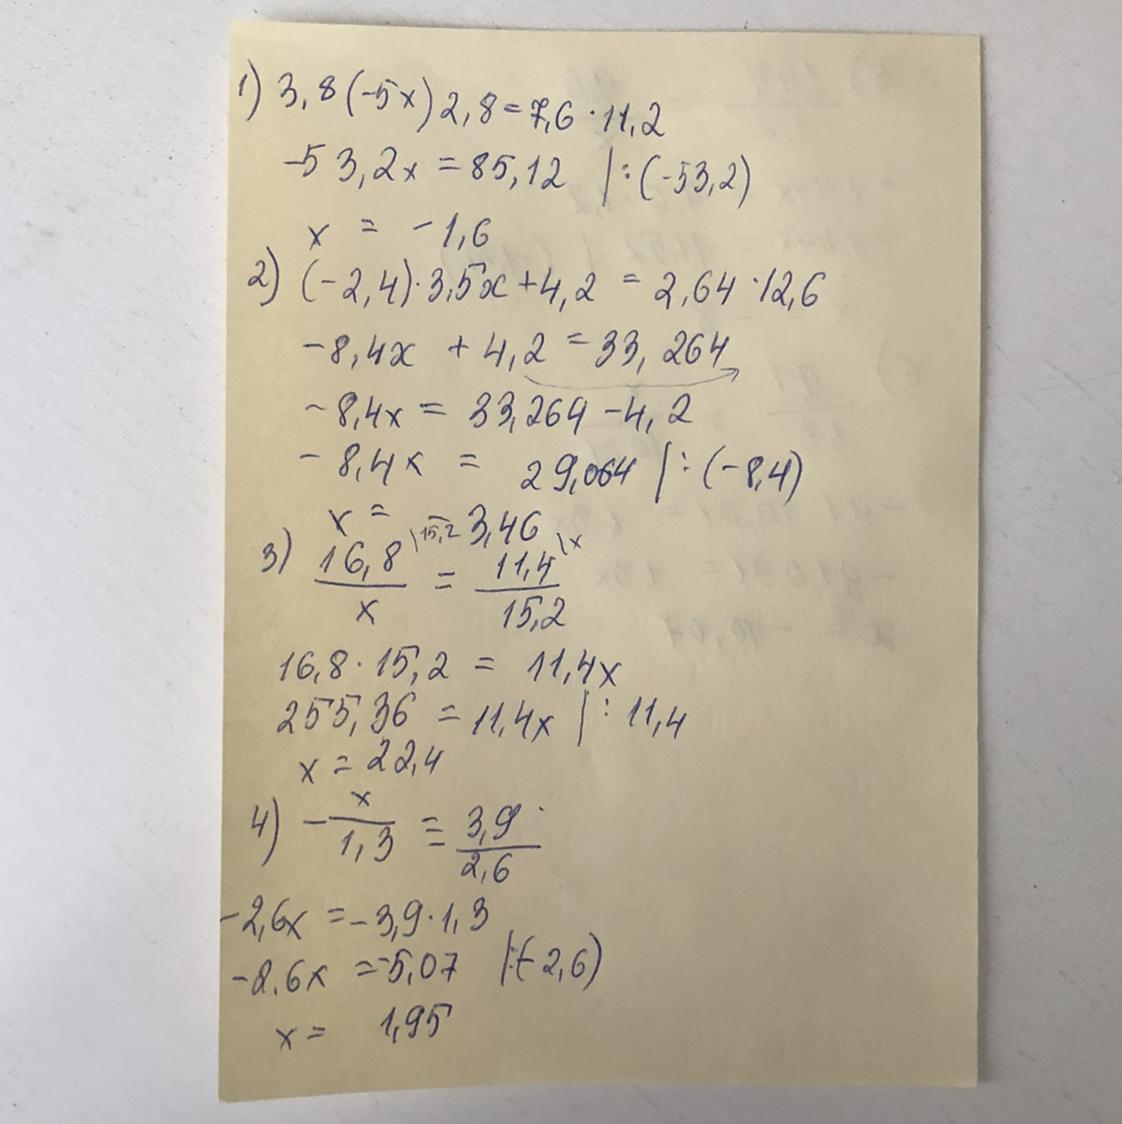 1) 3,8(-5x)2,8=7,6·11,2
-53,2x=85,12 |:(-53,2)
x = -1,6
2) (-2,4)·3,5x+4,2=2,64·12,6
-8,4x +4,2=33,264
-8,4x=33,264-4,2
-8,4x = 29,064 |:(-8,4)
x = -3,46
3) 16,8\15,2 / x = 11,4\x / 15,2
16,8·15,2 = 11,4x
255,36 =11,4x |:11,4
x=22,4
4) -x/1,3 = 3,9/2,6
-2,6x=-3,9·1,3
-2,6x=-5,07 |:(-2,6)
x= 1,95